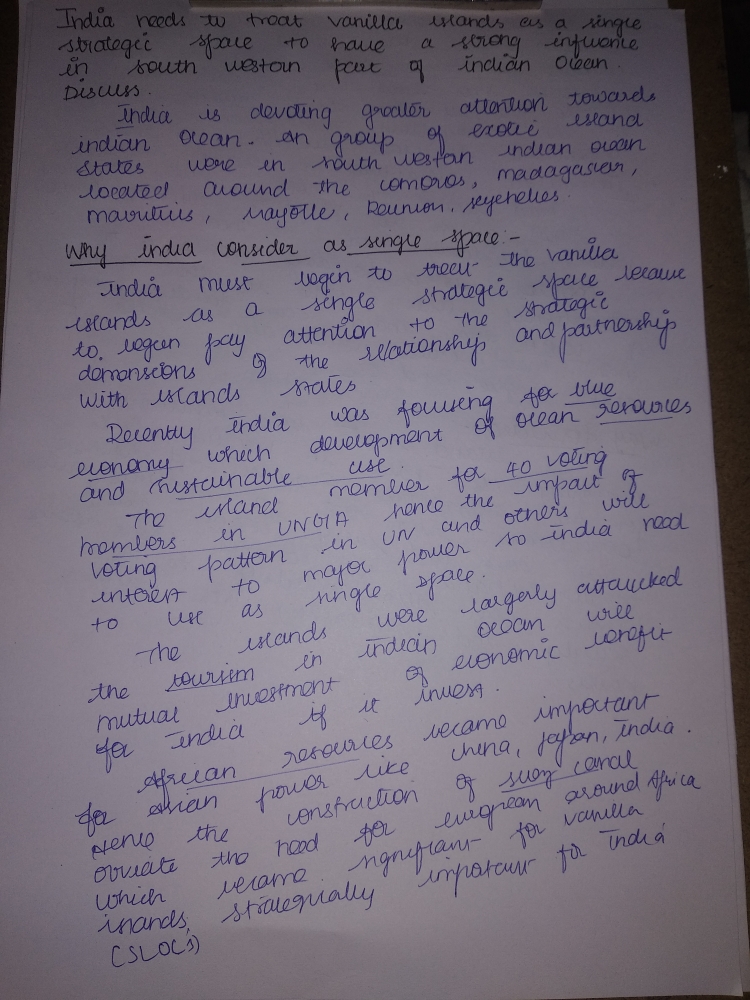 India needs to treat vanilla islands as a single
strategic space to have a strong influence
in south western part of indian Ocean.
Discuss.
India is devoting greater attention towards
indian Ocean. An group of exotic island
states were in south western indian ocean
located around the comoros, madagascar,
mauritius, mayotte, Reunion, seychelles.
Why india consider as single space:-
India must begin to treat the vanilla
islands as a single strategic space because
to begun pay attention to the strategic
demonscions of the relationship and partnership
with islands states
Recently india was focusing for blue
economy which development of ocean resources
and sustainable use.
The island member for 40 voting
members in UNGA hence the impact of
voting pattern in UN and others will
interest to major power so india need
to use as single space.
The islands were largely attaucked
the tourism in indian ocean will
mutual investment of economic benefit
for india if it invest.
African resources became important
for Asian power like china, japan, india.
Hence the construction of suez canal
obviate the need for european around Africa
which became significant for vanilla
inands, strategically important for india
(SLOCs)